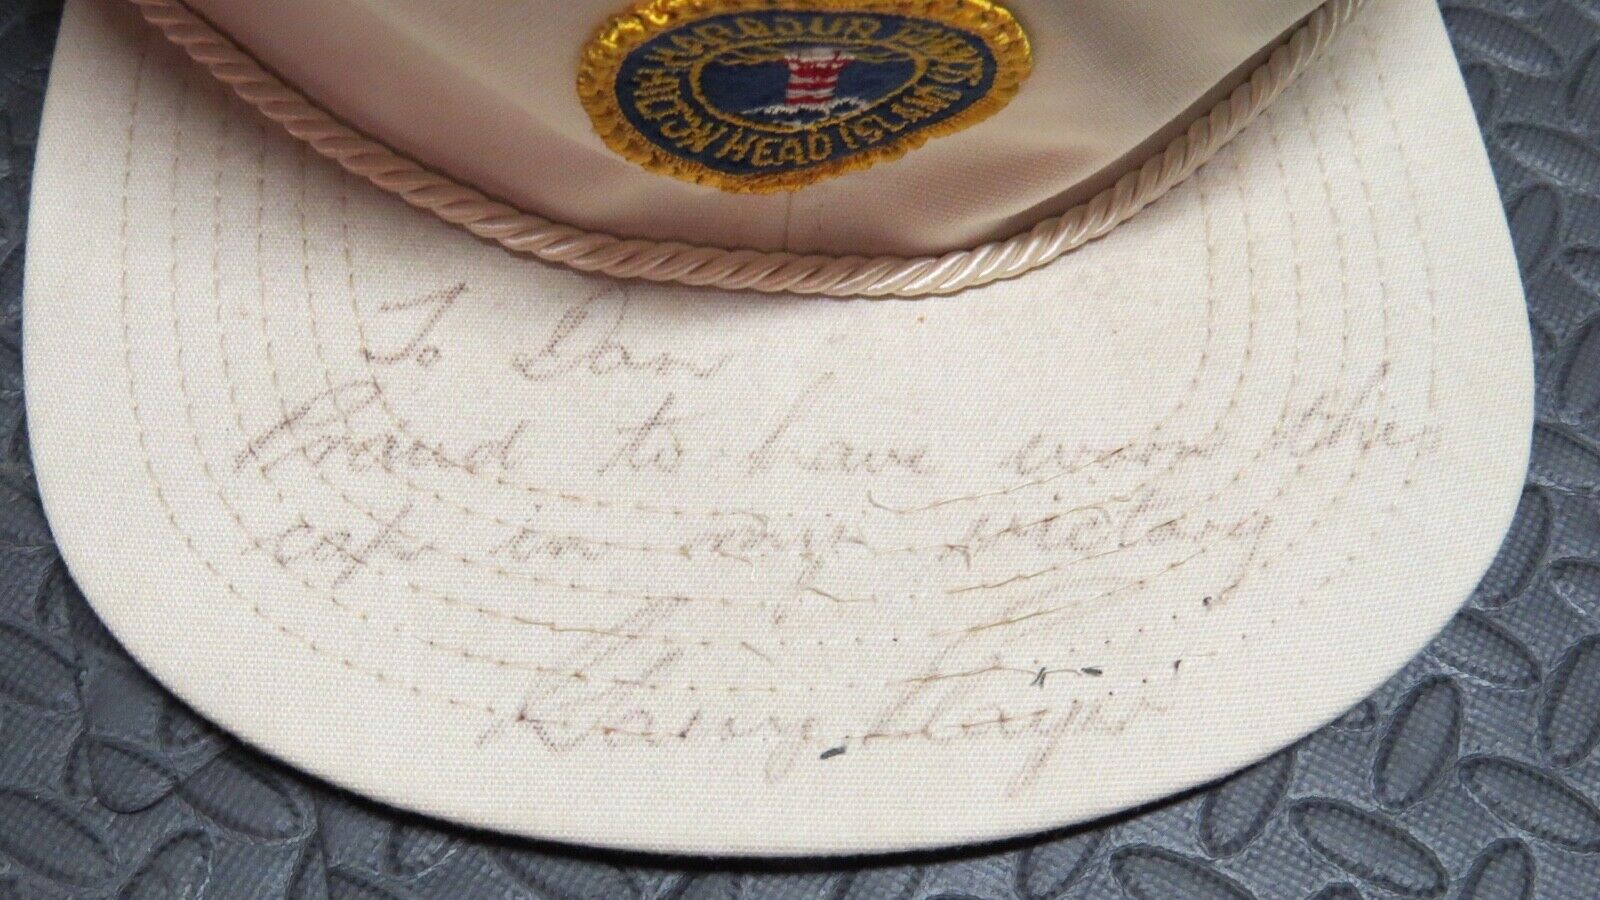 HARBOUR TOWN
HILTON HEAD ISLAND
To Dan
Proud to have worn this
in my victory
Gary Player